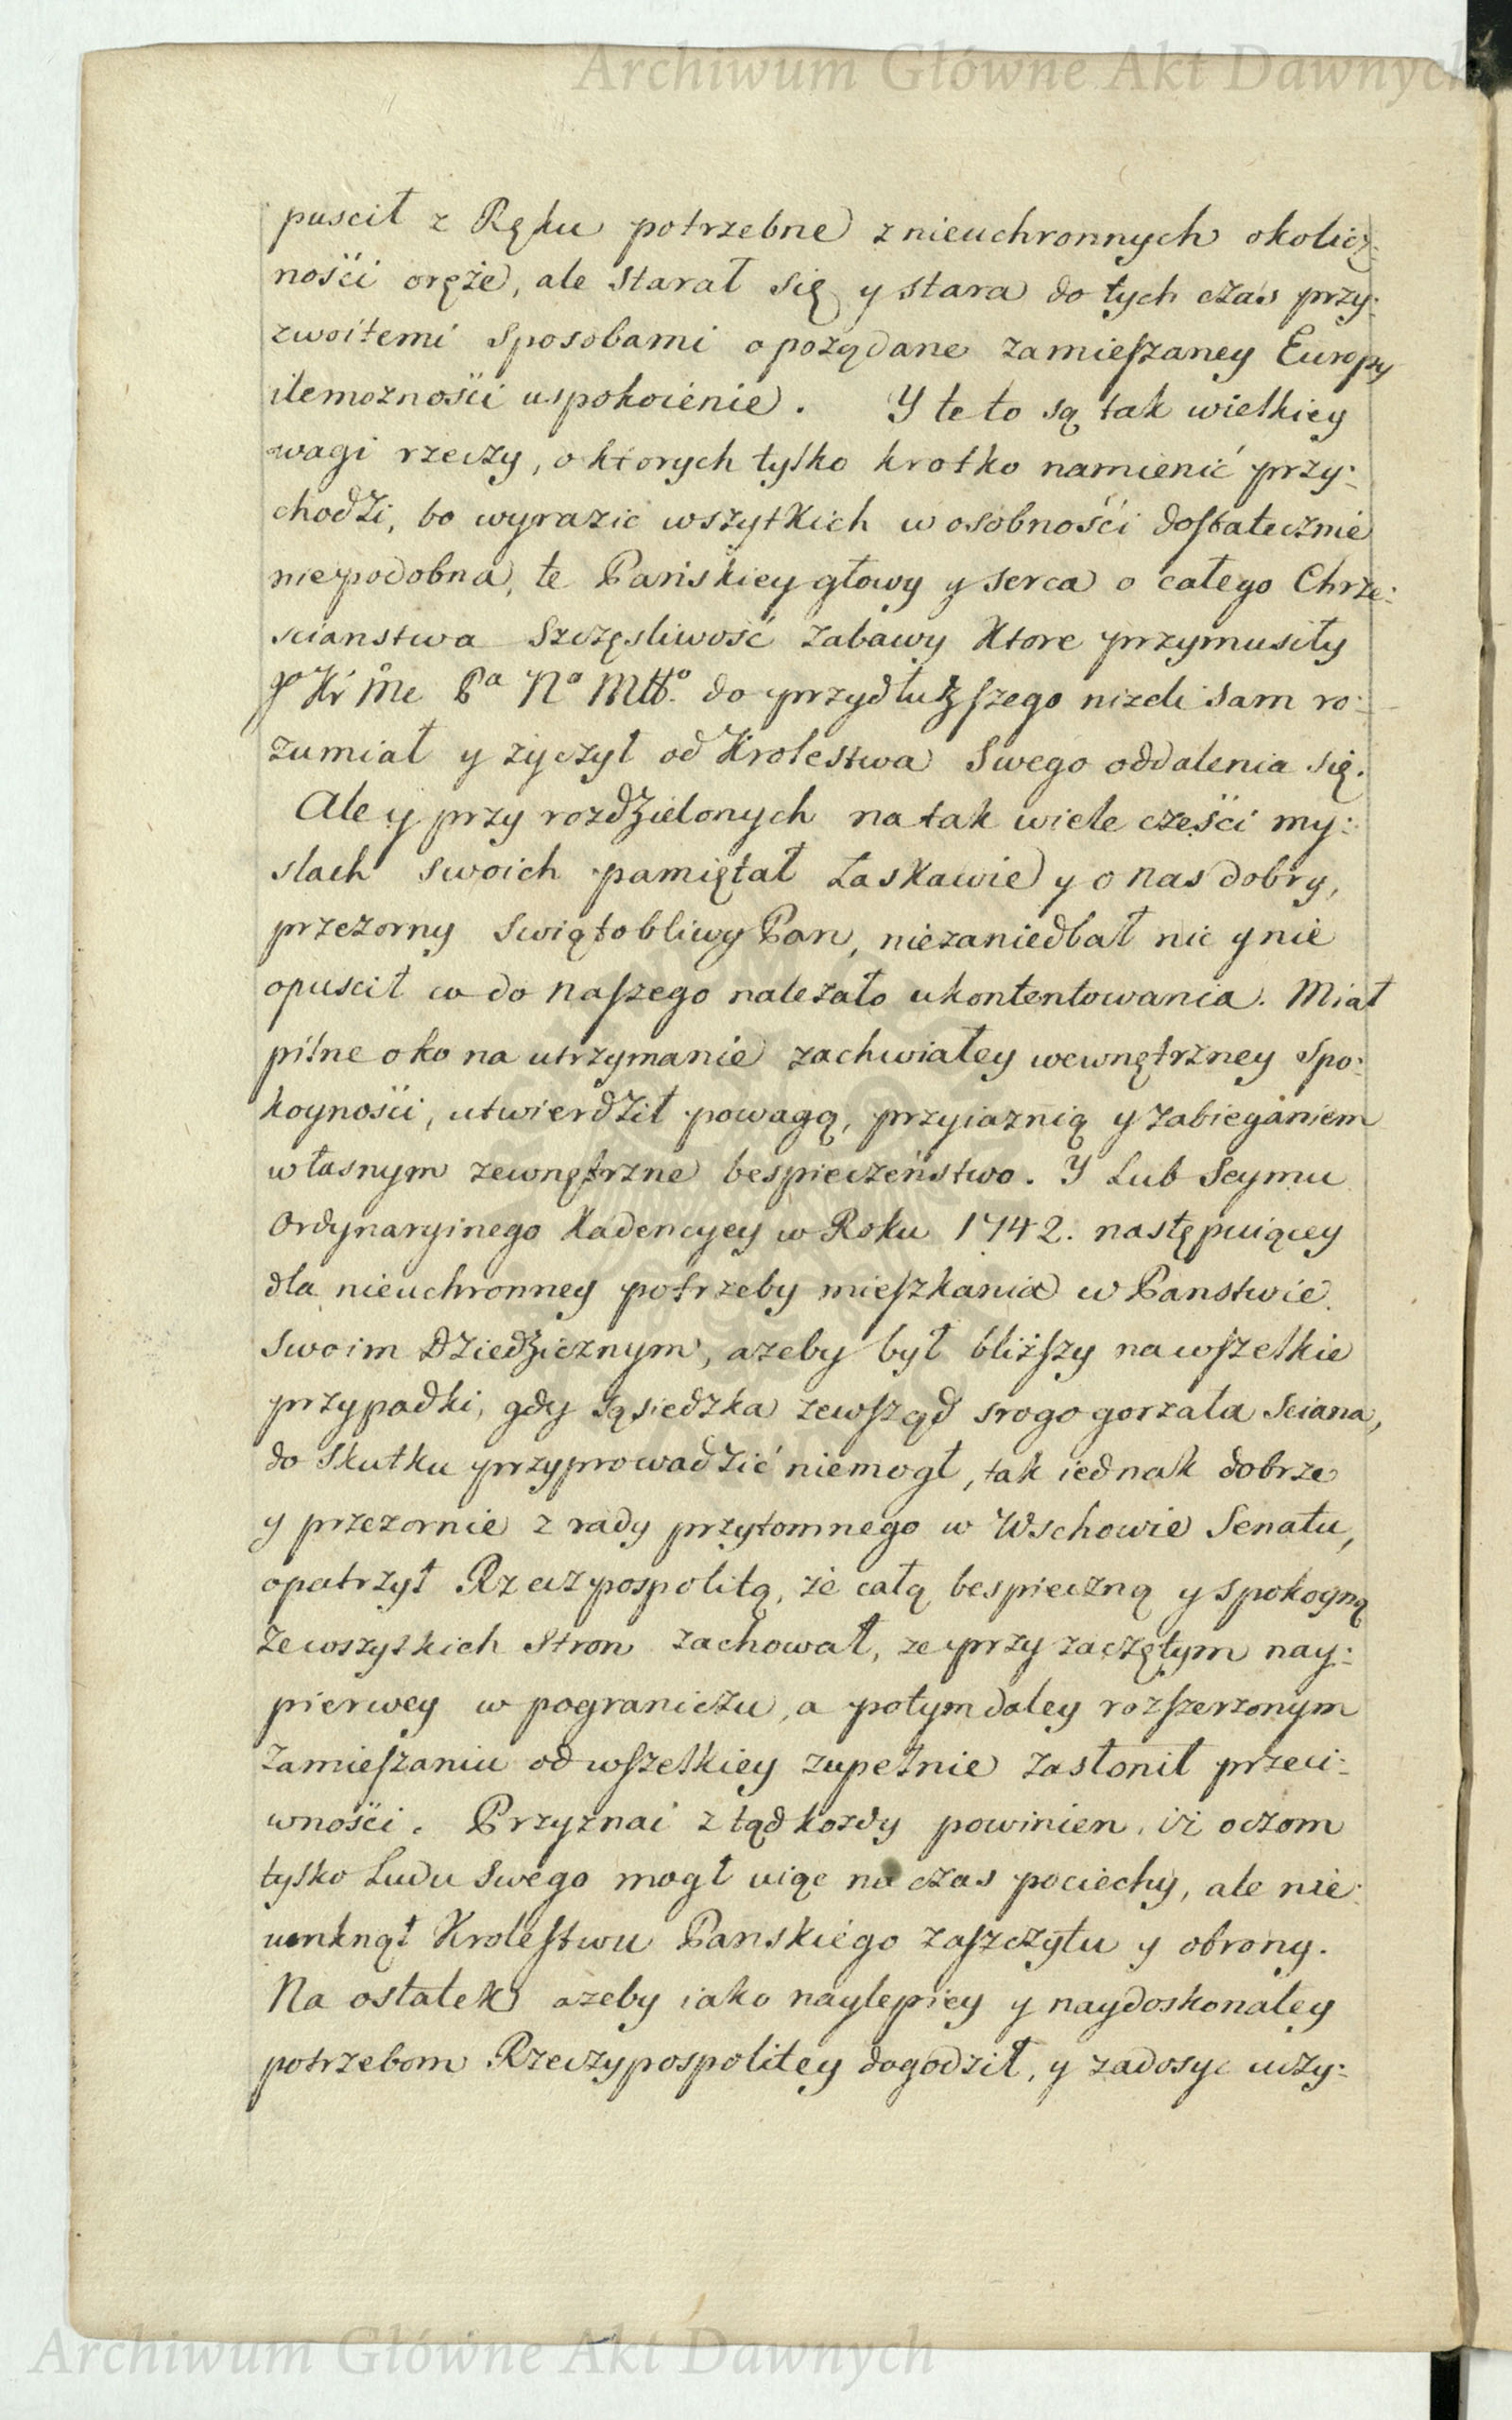 Archiwum Główne Akt Dawnych
puscił z Ręku potrzebne z nieuchronnych okolicz:
ności oręże, ale starał się y stara do tych czas przy:
zwoitemi sposobami o pożądane zamieszaney Europy
ilemożności uspokoienie. Y te to są tak wielkiey
wagi rzeczy, o ktorych tylko krotko namienić przy:
chodzi, bo wyrazic wszytkich w osobności dostatecznie
niepodobna, te Pańskiey głowy y serca o całego Chrze:
scianstwa Szczęsliwość zabawy Ktore przymusiły
Kr Me Pa No Mttº do przydłuższego nizeli sam ro:
zumiał y zyczył od Krolestwa Swego oddalenia się.
Ale y przy rozdzielonych na tak wiele częsci my:
slach swoich pamiętał Łaskawie y o nas dobry,
przezorny swiątobliwy Pan, niezaniedbał nic y nie
opuscił co do naszego nalezało ukontentowania. Miał
pilne oko na utrzymanie zachwiałey wewnętrzney spo:
koyności, utwierdził powagą, przyiaznią y zabieganiem
własnym zewnętrzne bespieczeństwo. Y Lub Seymu
Ordynaryinego Kadencyey w Roku 1742. następuiącey
dla nieuchronney potrzeby mieszkania w Panstwie
swoim Dziedzicznym, azeby był bliższy na wszelkie
przypadki, gdy sąsiedzka zewsząd srogo gorzała sciana,
do skutku przyprowadzić niemogł, tak iednak dobrze
y przezornie z rady przytomnego w Wschowie Senatu,
opatrzył Rzeczpospolitą, że całą bespieczną y spokoyną
ze wszytkich stron zachował, ze przy zaczętym nay:
pierwey w pograniczu, a potym daley rozszerzonym
zamieszaniu od wszelkiey zupełnie zasłonił przeci:
wności. Przyznai z tąd kozdy powinien, iż oczom
tylko Ludu swego mogł uiąc na czas pociechy, ale nie
umknął Krolestwu Panskiego zaszczytu y obrony.
Na ostatek azeby iako naylepiey y naydoskonaley
potrzebom Rzeczypospolitey dogodził, y zadosyc uczy:
Archiwum Główne Akt Dawnych